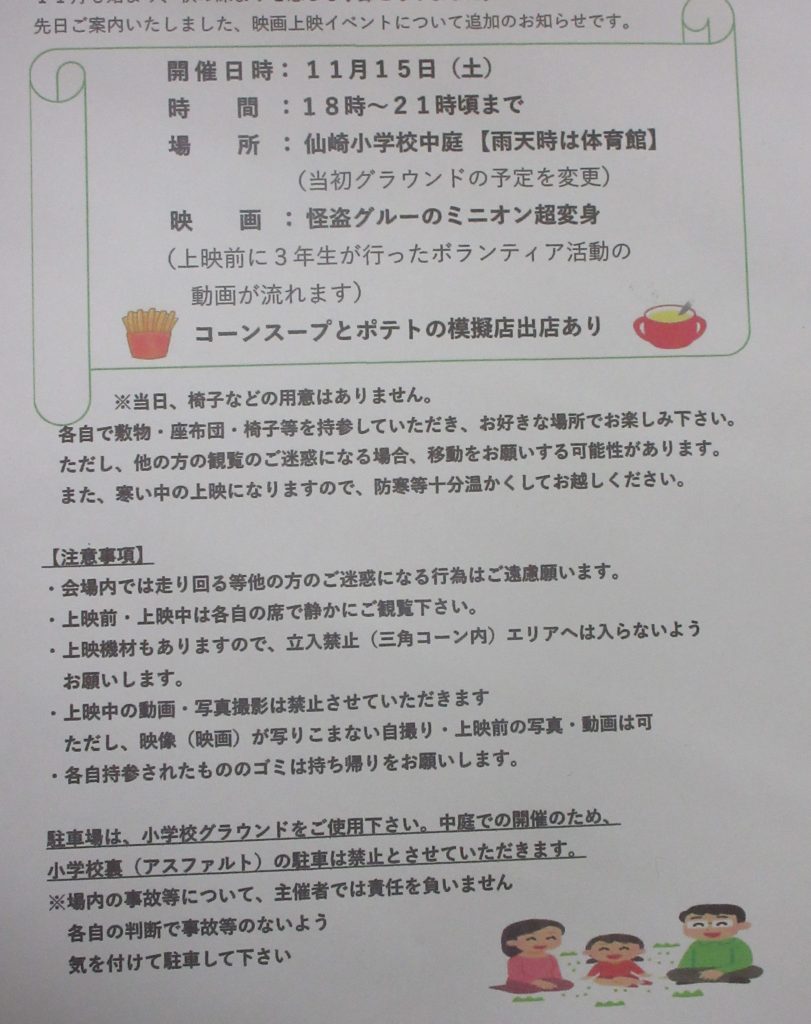 先日ご案内いたしました、映画上映イベントについて追加のお知らせです。
開催日時：１１月１５日（土）
時　間：１８時～２１時頃まで
場　所：仙崎小学校中庭【雨天時は体育館】
（当初グラウンドの予定を変更）
映　画：怪盗グルーのミニオン超変身
（上映前に３年生が行ったボランティア活動の
動画が流れます）
コーンスープとポテトの模擬店出店あり
※当日、椅子などの用意はありません。
各自で敷物・座布団・椅子等を持参していただき、お好きな場所でお楽しみ下さい。
ただし、他の方の観覧のご迷惑になる場合、移動をお願いする可能性があります。
また、寒い中の上映になりますので、防寒等十分温かくしてお越しください。
【注意事項】
・会場内では走り回る等他の方のご迷惑になる行為はご遠慮願います。
・上映前・上映中は各自の席で静かにご観覧下さい。
・上映機材もありますので、立入禁止（三角コーン内）エリアへは入らないよう
お願いします。
・上映中の動画・写真撮影は禁止させていただきます
ただし、映像（映画）が写りこまない自撮り・上映前の写真・動画は可
・各自持参されたもののゴミは持ち帰りをお願いします。
駐車場は、小学校グラウンドをご使用下さい。中庭での開催のため、
小学校裏（アスファルト）の駐車は禁止とさせていただきます。
※場内の事故等について、主催者では責任を負いません
各自の判断で事故等のないよう
気を付けて駐車して下さい